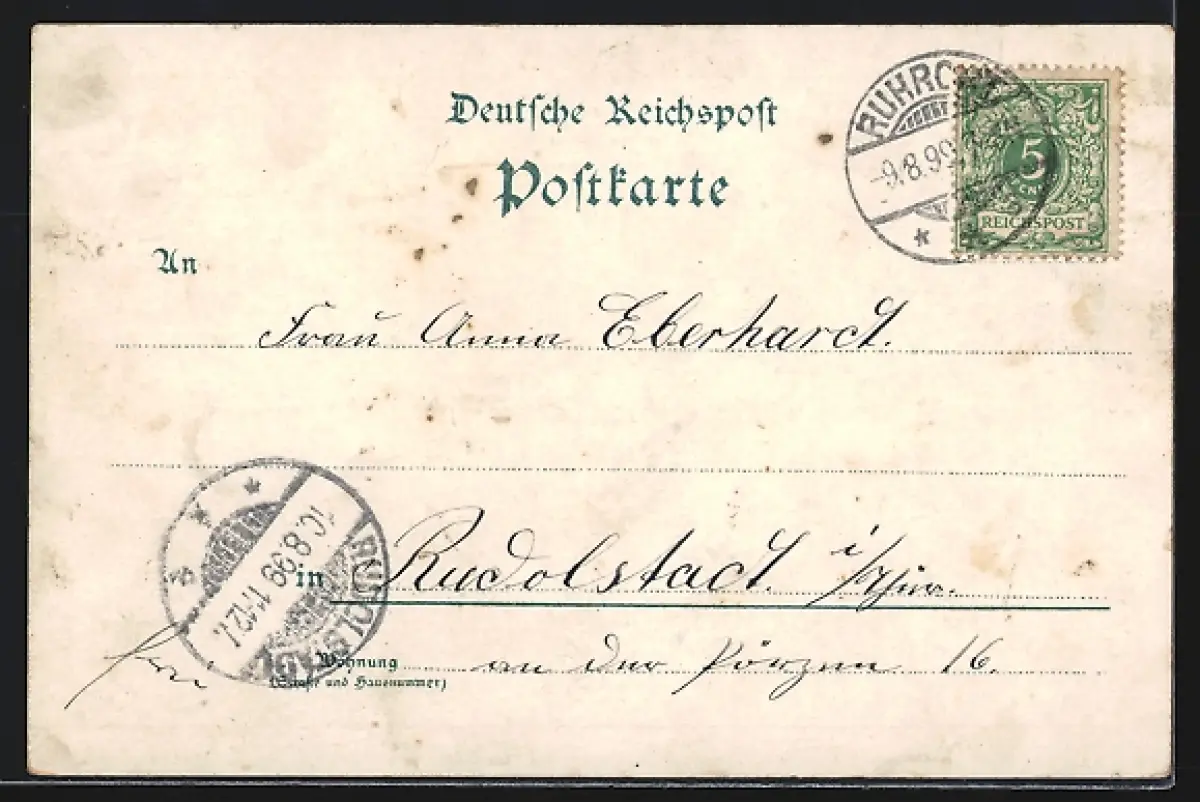 Deutsche Reichspost
Postkarte
RUHRORT
-9.8.99
5
REICHSPOST
An
Frau Anna Eberhardt.
in Rudolstadt i/Thür.
Wohnung an der Pörzen 16.
(Straße und Hausnummer)
RUDOLSTADT
10.8.99 11-12V.